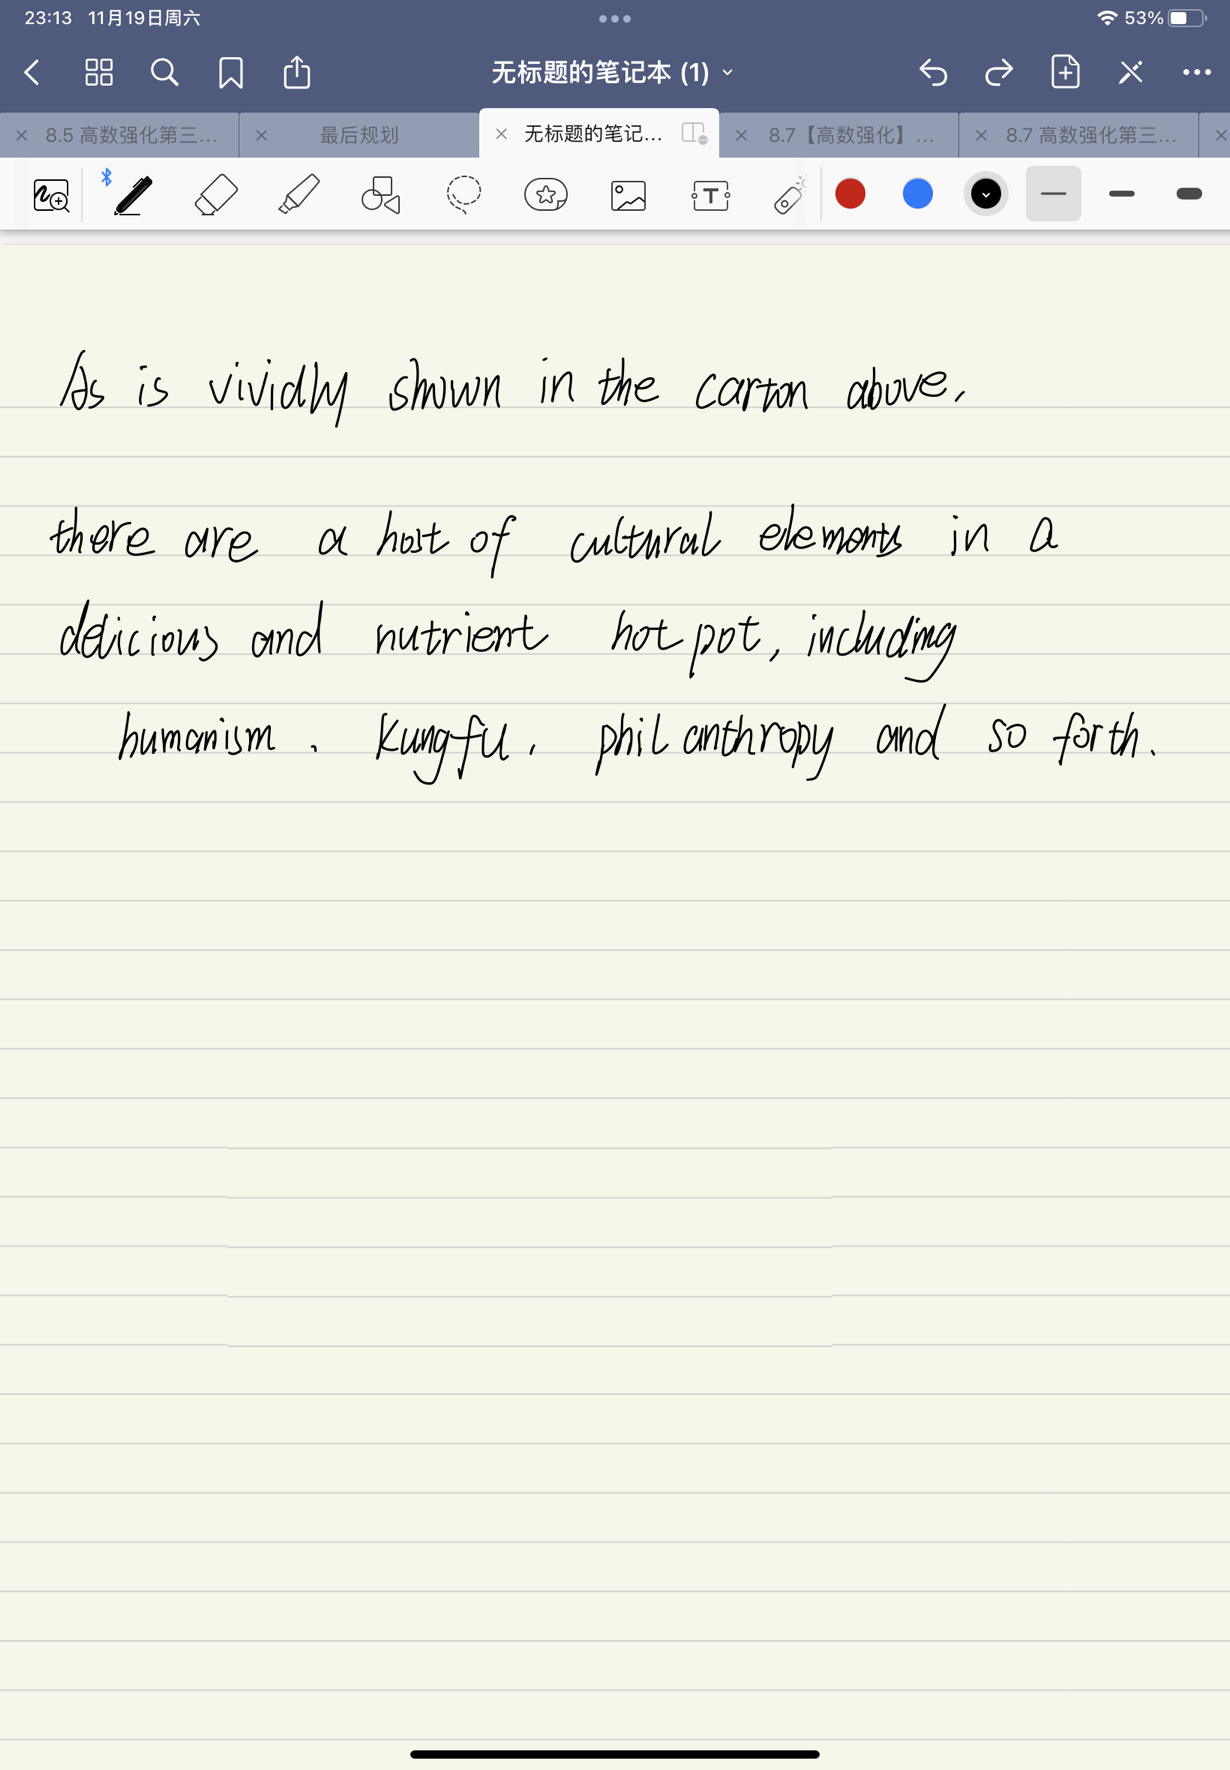 23:13 11月19日周六 53%
无标题的笔记本 (1)
8.5 高数强化第三... 最后规划 无标题的笔记... 8.7【高数强化】... 8.7 高数强化第三...
As is vividly shown in the carton above,
there are a host of cultural elements in a
delicious and nutrient hot pot, including
humanism, Kungfu, philanthropy and so forth.